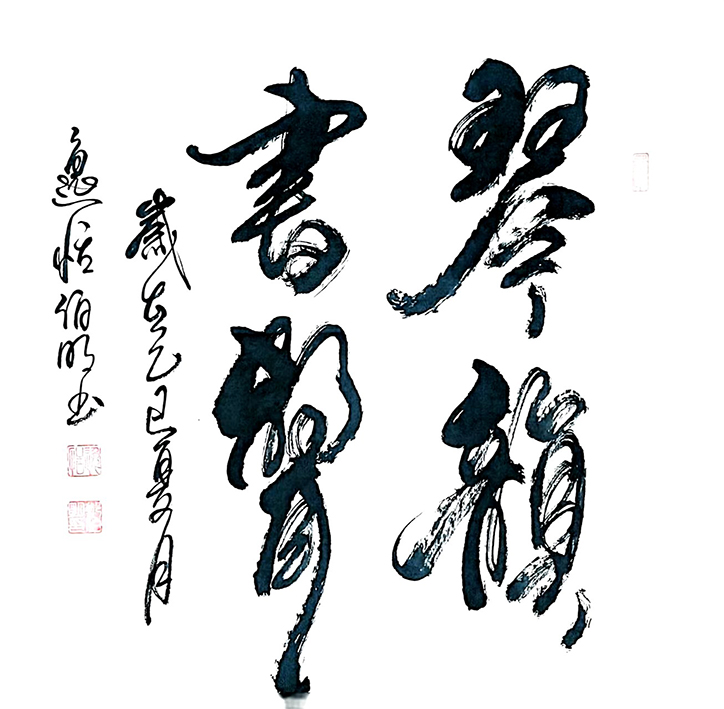 琴韻
書聲
歲在乙巳夏月
恬伯明书